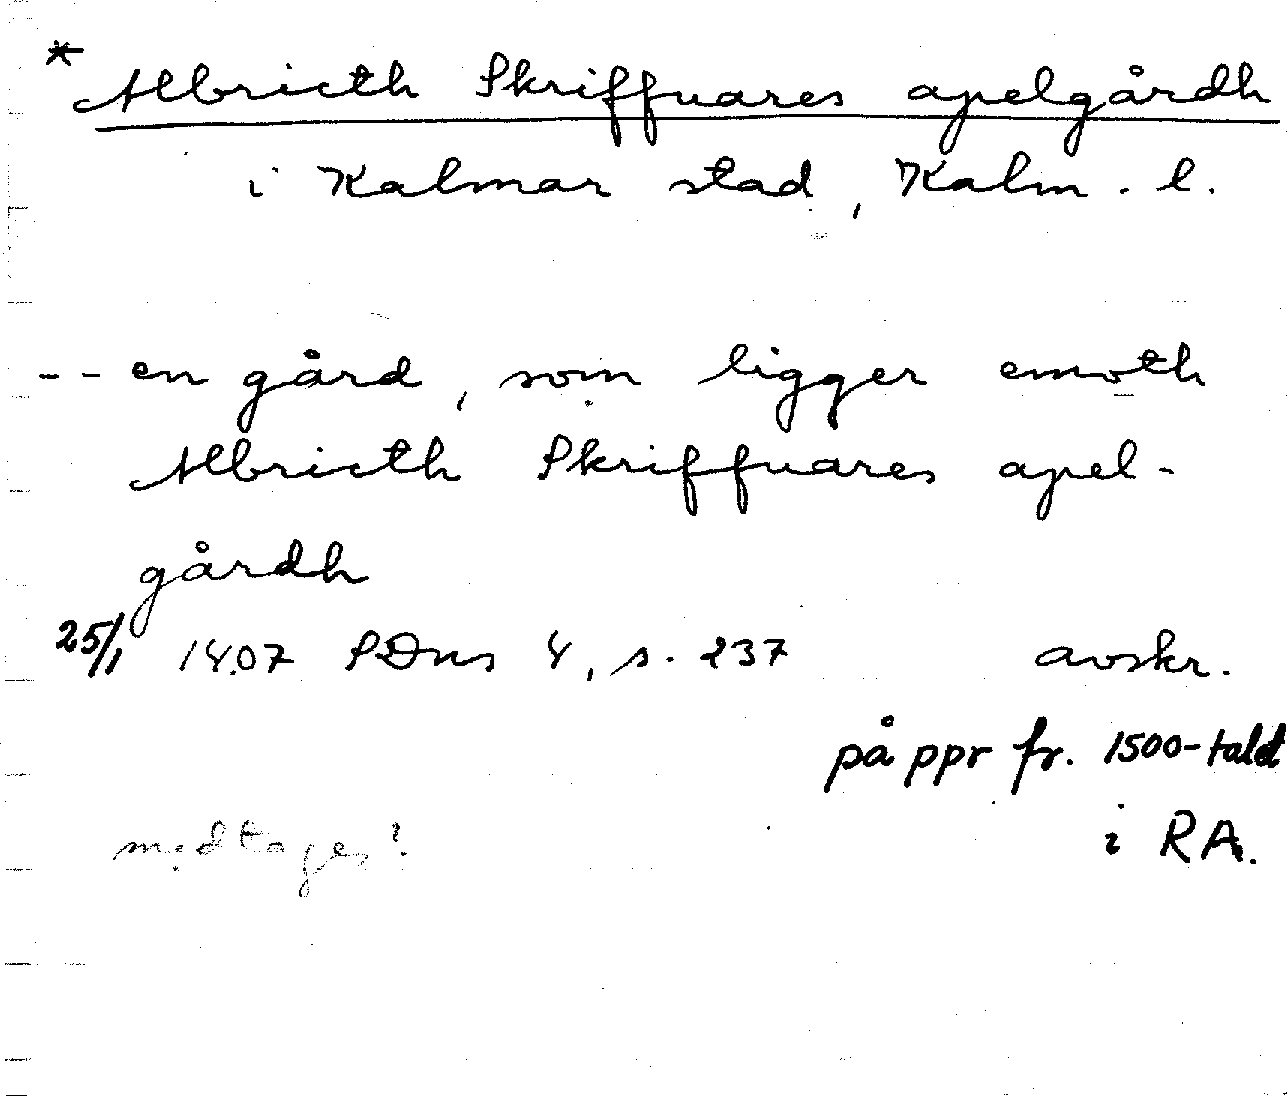 * Albricth Skriffuares apelgårdh
i Kalmar stad, Kalm. l.
-- en gård, som ligger emoth
Albricth Skriffuares apel-
gårdh
25/1 1407 SDns 4, s. 237 avskr.
på ppr fr. 1500-talet
i RA.
medtages?